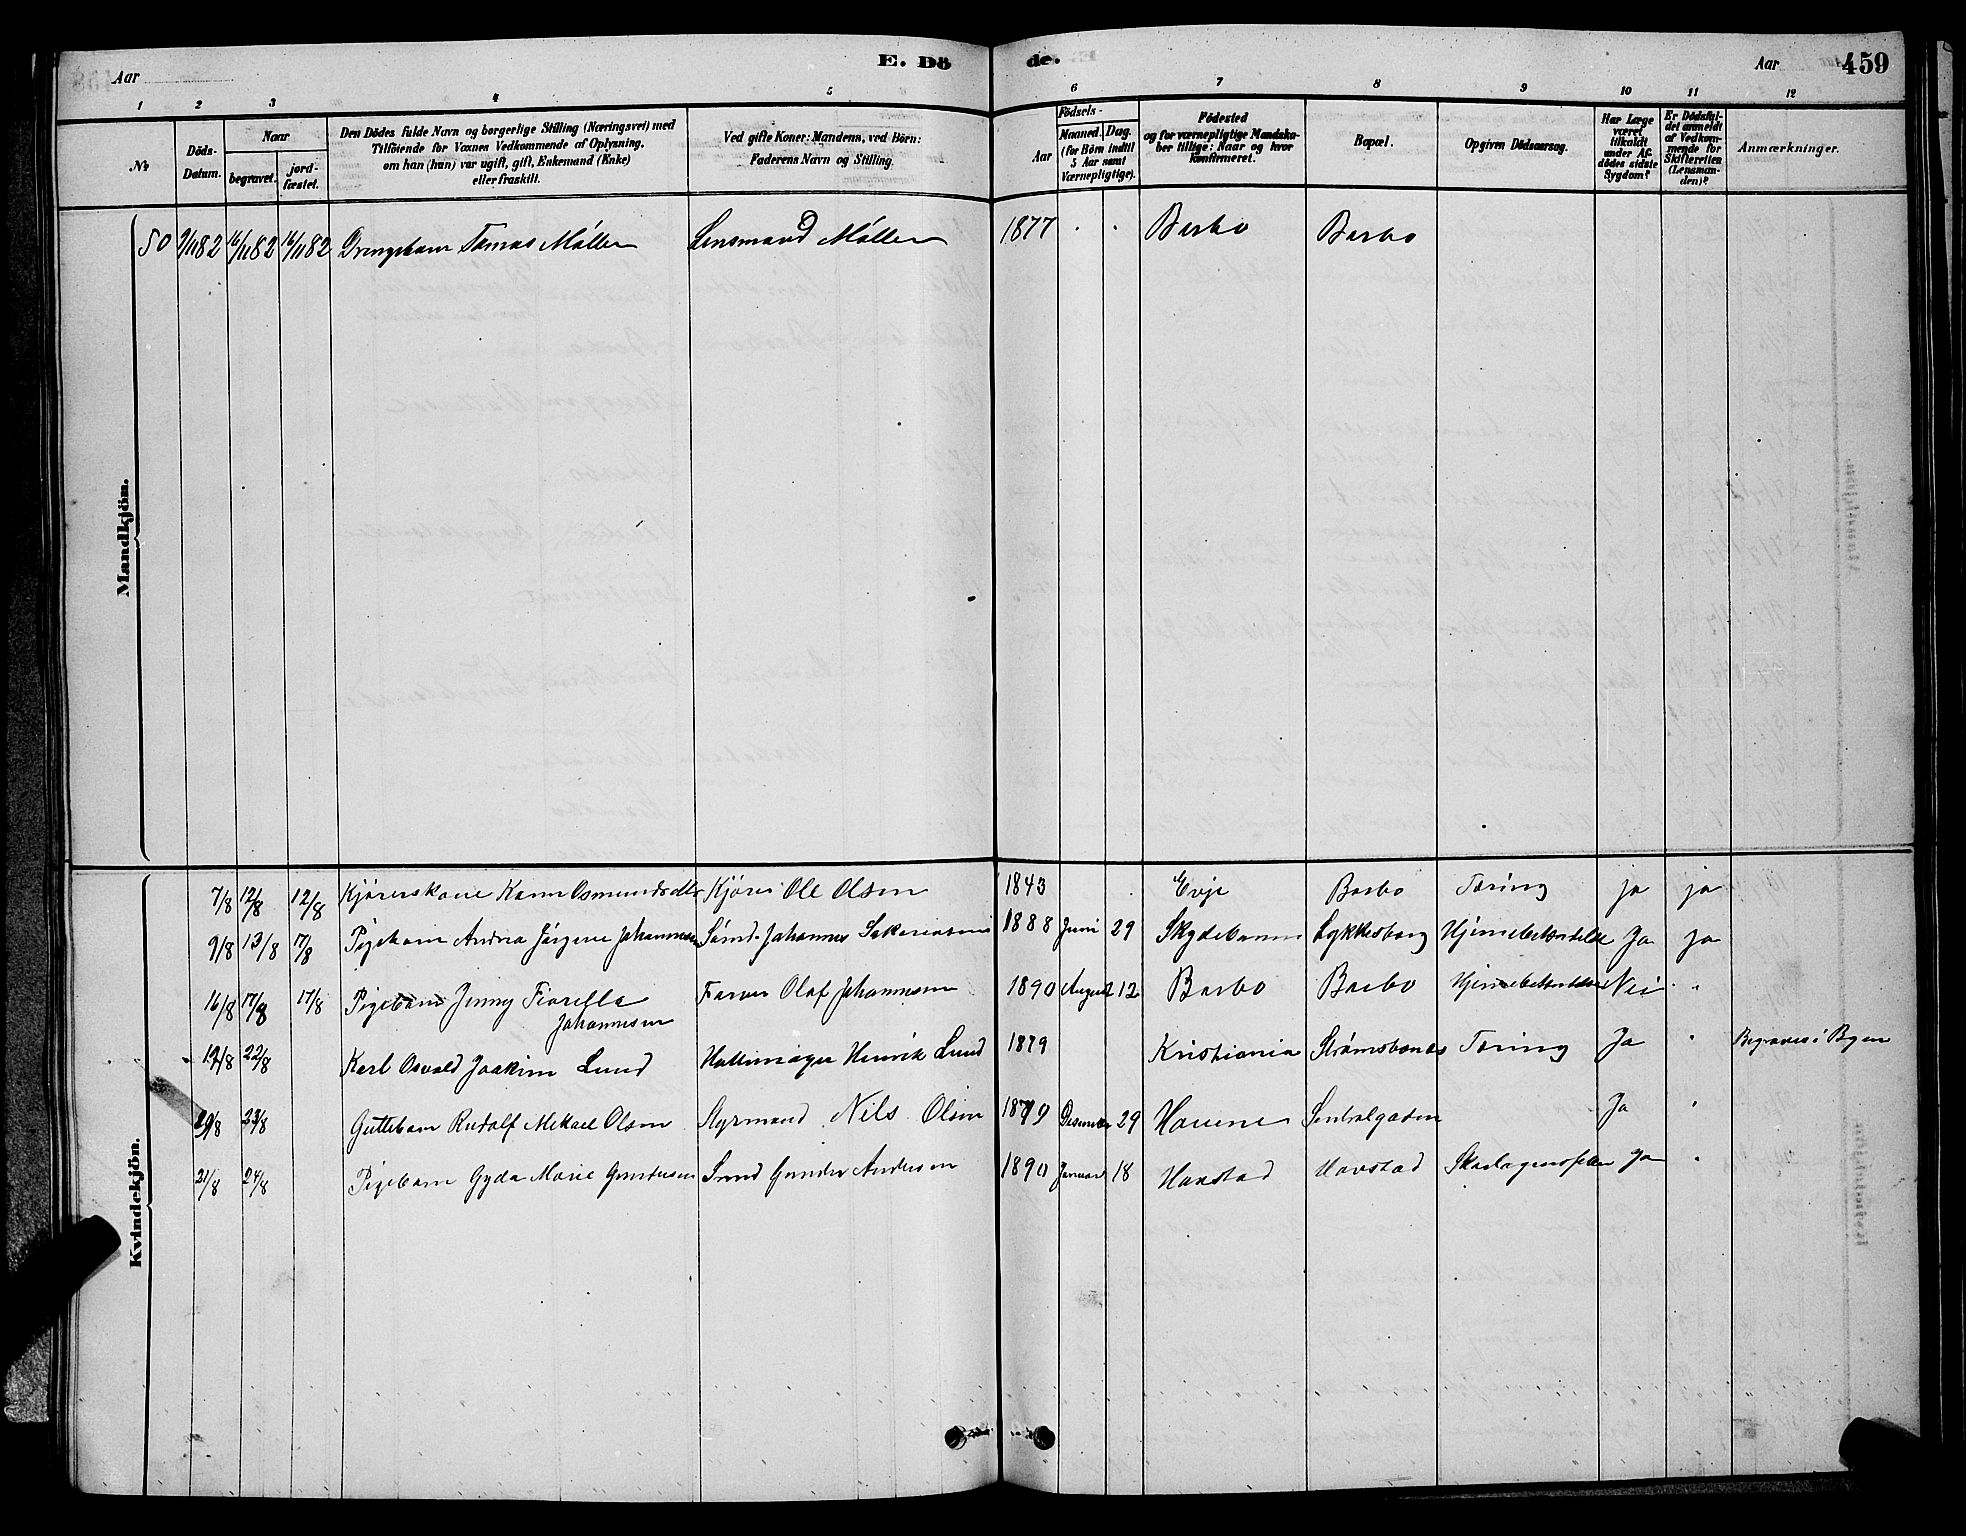 Aar
E. Dö
de.
Aar
459
1 2 3 4 5 6 7 8 9 10 11 12
No
Döds-
Datum.
Naar
begravet.
jord-
fæstet.
Den Dödes fulde Navn og borgerlige Stilling (Næringsvei) med
Tilföiende for Voxnes Vedkommende af Oplysning,
om han (hun) var ugift, gift, Enkemand (Enke)
eller fraskilt.
Ved gifte Koner: Mandens, ved Börn:
Faderens Navn og Stilling.
Aar
Födsels-
Maaned.
Dag.
(for Börn indtil
5 Aar samt
Værnepligtige).
Födested
og for værnepligtige Mandska-
ber tillige: Naar og hvor
konfirmeret.
Bopæl.
Opgiven Dödsaarsag.
Har Læge
været
tilkaldt
under Af-
dödes sidste
Sygdom?
Er Dödsfal-
det anmeldt
af Vedkom-
mende for
Skifteretten
(Lensman-
den)?
Anmærkninger.
Mandkjön.
50 9/1182 16/1182 16/1182 Drengebarn Tomas Møller Lensmand Møller 1877 Barbo Barbo
Kvindekjön.
7/8 12/8 12/8 Kjørerskone Karen Osmundsdtr Kjører Ole Olsen 1843 Evje Barbo Tæring ja ja
9/8 13/8 17/8 Pigebarn Andrea Jørgine Johannesen Sømd. Johannes Sakariasen 1888 Juni 29 Skydebanen Lykkesborg Hjernebetændelse Ja ja
16/8 17/8 17/8 Pigebarn Jenny Fiorella Farver Olaf Johannesen 1890 August 12 Barbo Barbo Hjernebetændelse Nei "
Johannesen
17/8 22/8 Karl Osvald Joakim Lund Hattemager Henrik Lund 1879 Kristiania Strømsbones Tæring Ja " Begraves i Byen
20/8 23/8 Guttebarn Rudolf Mekael Olsen Styrmand Nils Olsen 1879 Desember 29 Havene Sentralgaden Ja "
21/8 24/8 Pigebarn Gyda Marie Gundersen Sømd Gunder Andersen 1890 Januar 18 Havstad Havstad Skarlagensfeber Ja "